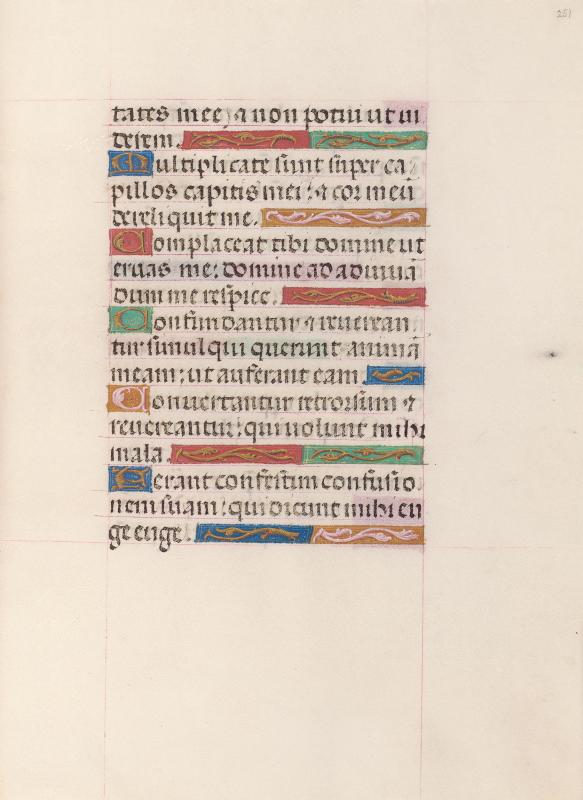 251
tates mee, ⁊ non potui ut ui
derem.
Multiplicate sunt super ca/
pillos capitis mei: ⁊ cor meū
dereliquit me.
Complaceat tibi domine ut
eruas me: domine ad adiuuā
dum me respice.
Confundantur ⁊ reuerean
tur simul qui querunt animā
meam: ut auferant eam
Conuertantur retrorsum ⁊
reuereantur: qui uolunt mihi
mala.
Ferant confestim confusio
nem suam: qui dicunt mihi eu
ge euge.